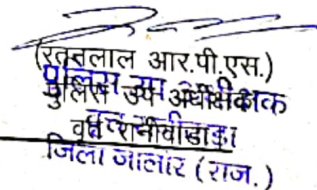 (रतनलाल आर.पी.एस.)
पुलिस उप अधीक्षक
वृत रानीवाडा
जिला जालोर (राज.)